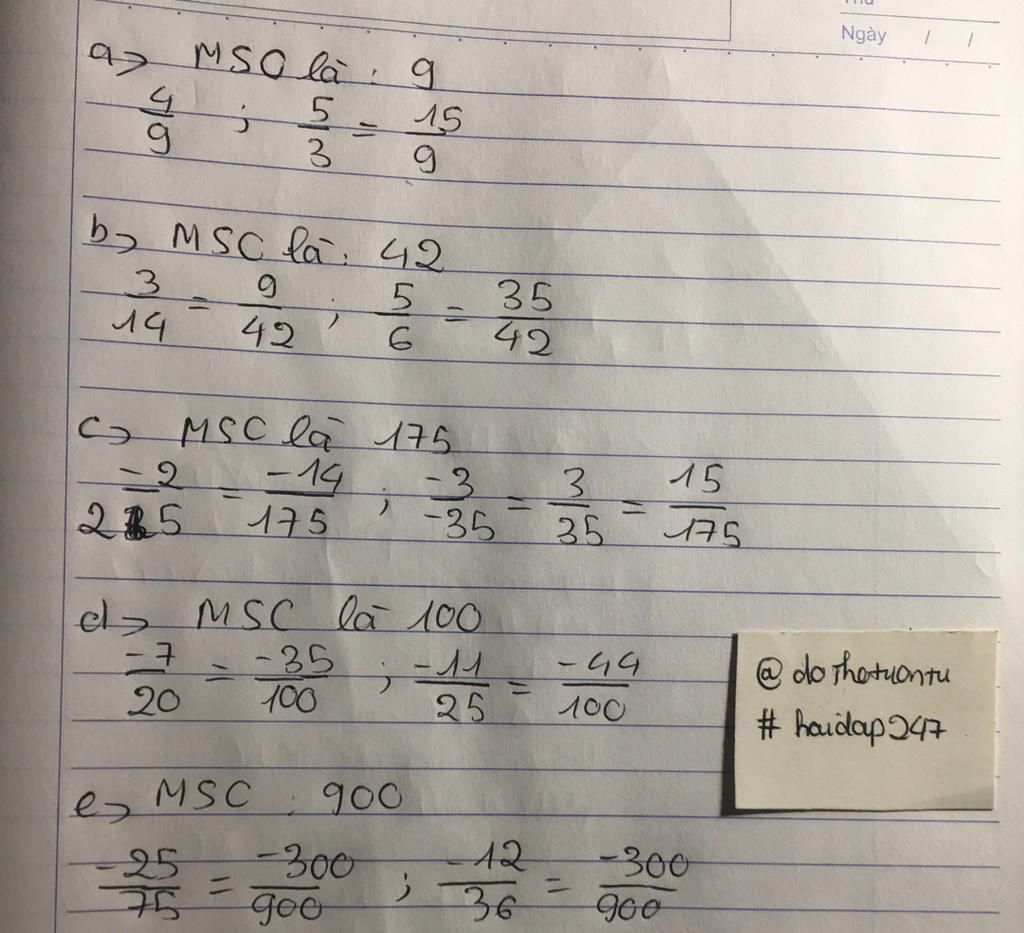 Ngày / /
a> MSC là : 9
4/9 ; 5/3 = 15/9
b> MSC là : 42
3/14 = 9/42 ; 5/6 = 35/42
c> MSC là 175
-2/25 = -14/175 ; -3/-35 = 3/35 = 15/175
d> MSC là 100
-7/20 = -35/100 ; -11/25 = -44/100
@ dothotuontu
# hoidap247
e> MSC : 900
-25/75 = -300/900 ; -12/36 = -300/900